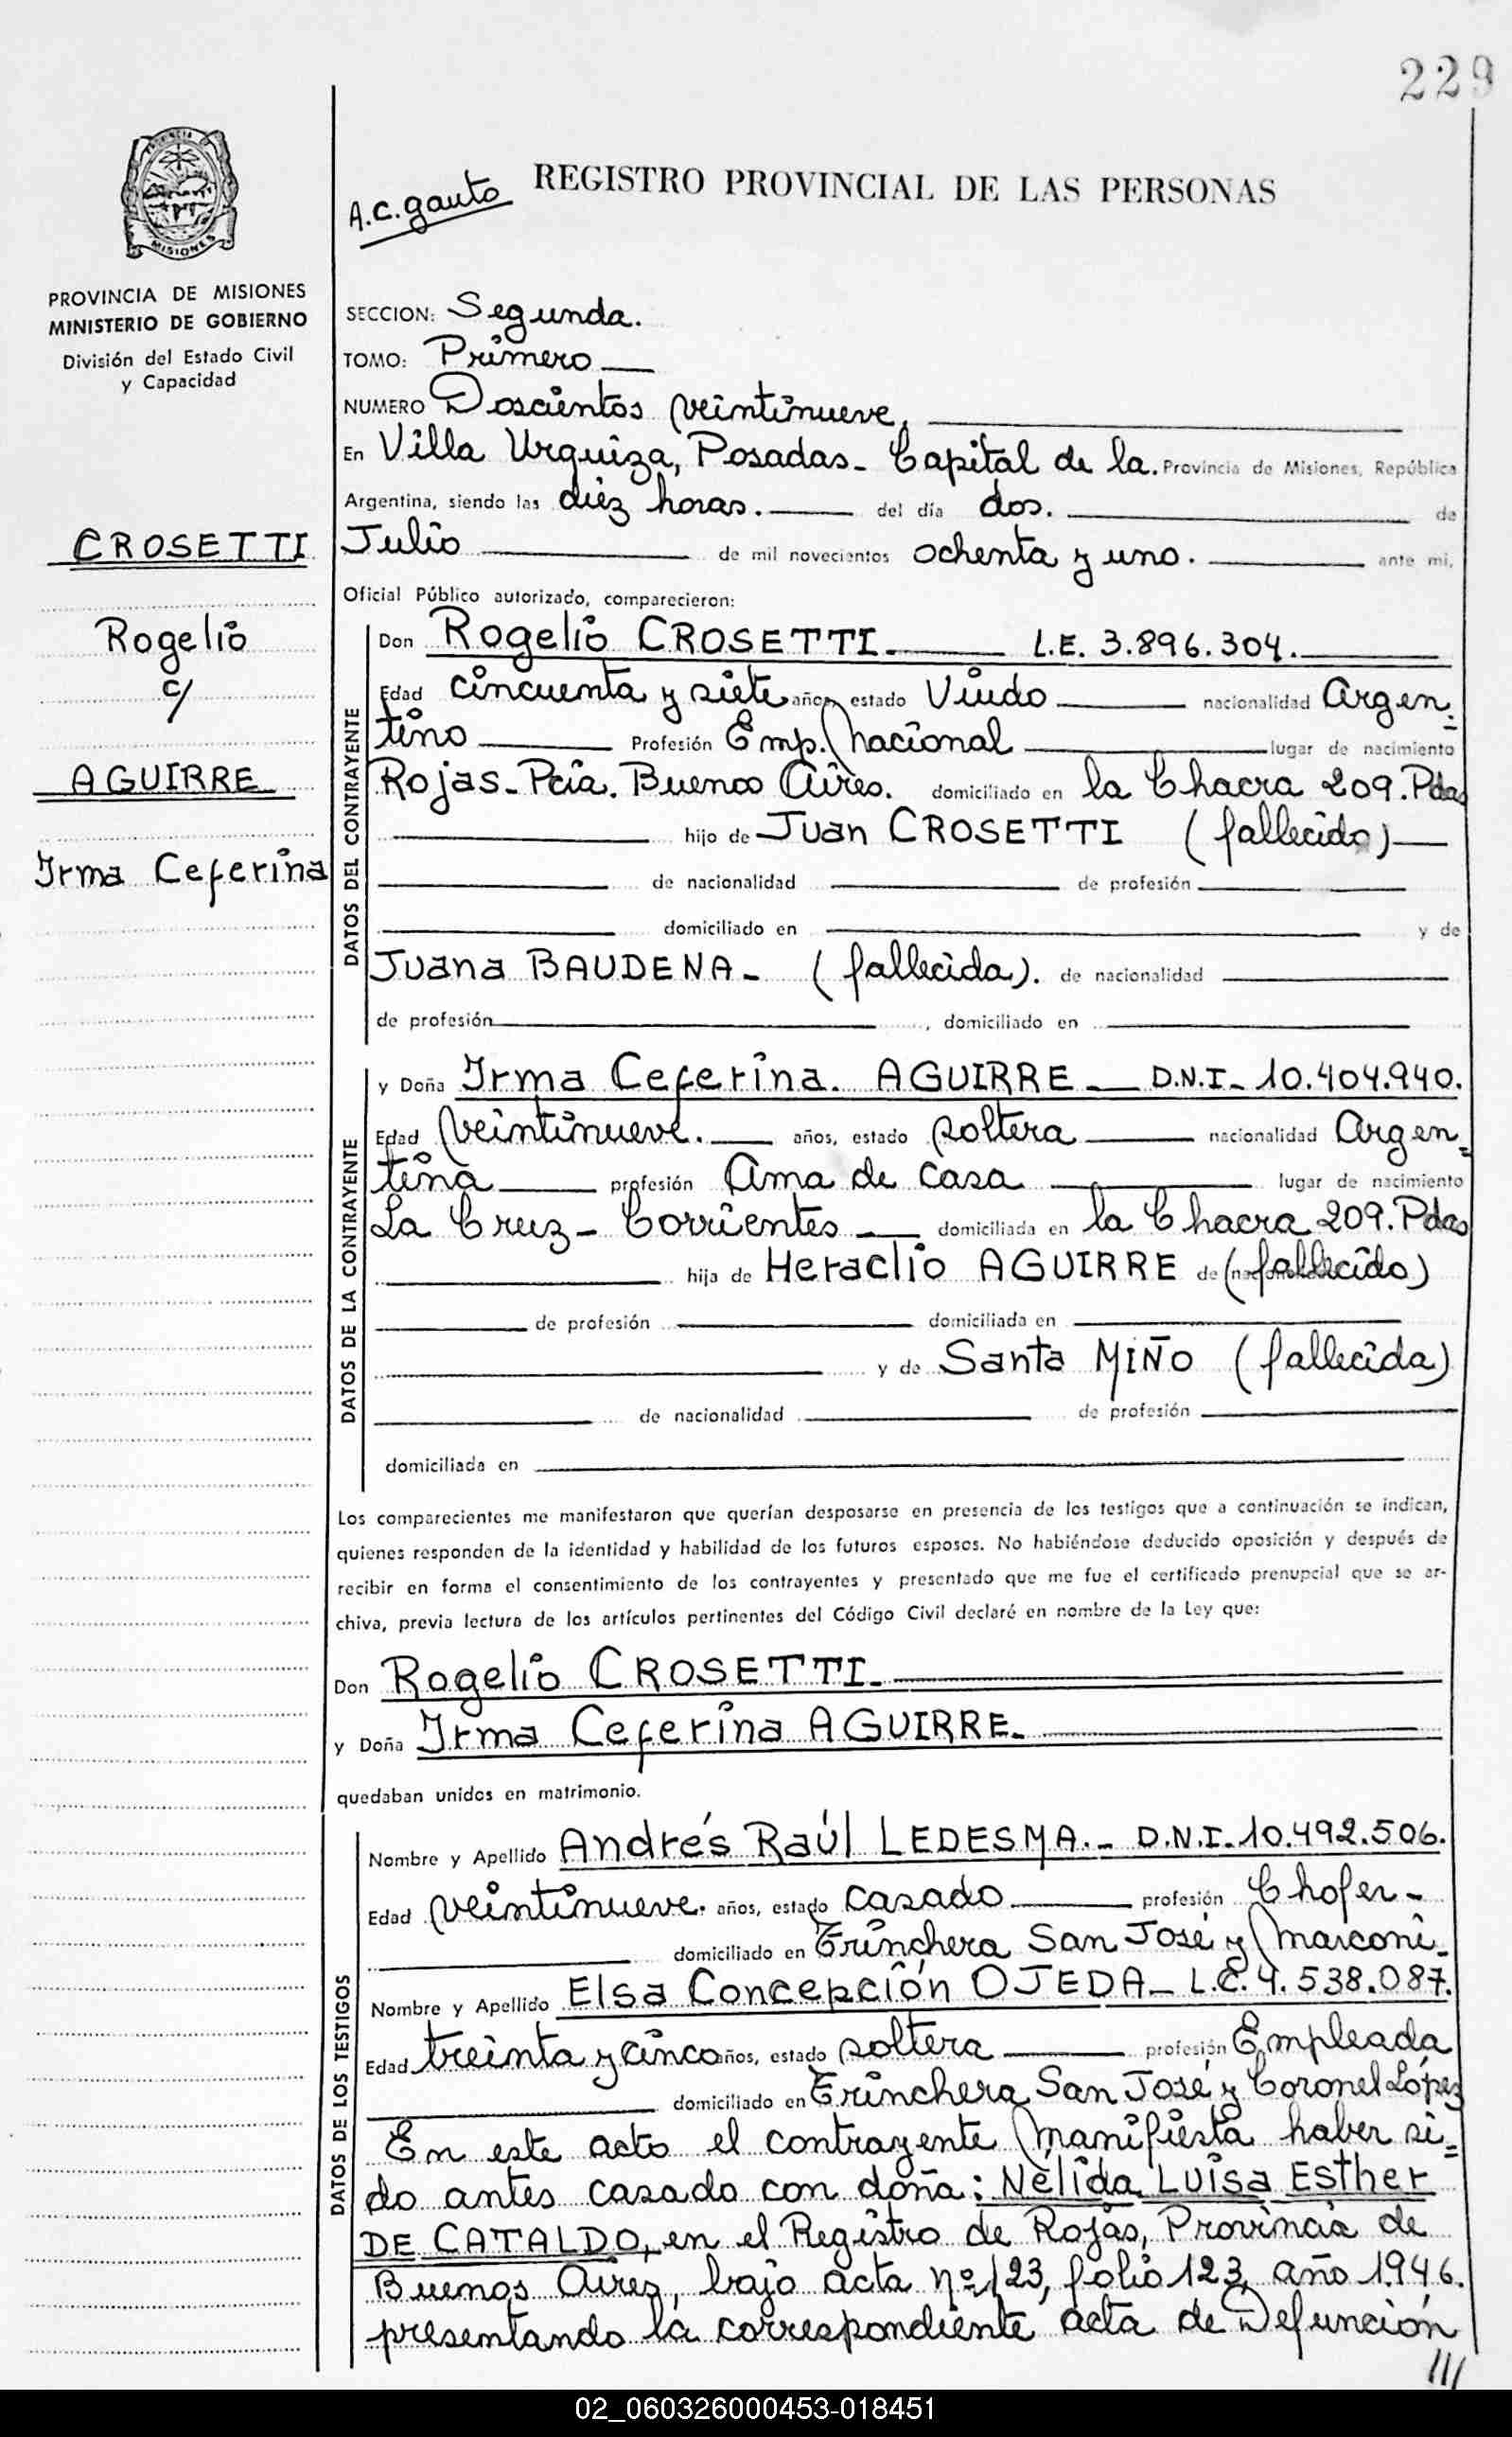 229
PROVINCIA
MISIONES
A.C. gauto
REGISTRO PROVINCIAL DE LAS PERSONAS
PROVINCIA DE MISIONES
MINISTERIO DE GOBIERNO
División del Estado Civil
y Capacidad
CROSETTI
Rogelio
c/
AGUIRRE
Irma Ceferina
SECCION: Segunda.
TOMO: Primero
NUMERO Doscientos veintinueve,
En Villa Urquiza, Posadas - Capital de la. Provincia de Misiones, República
Argentina, siendo las diez horas. del día dos. de
Julio de mil novecientos ochenta y uno. ante mi,
Oficial Público autorizado, comparecieron:
DATOS DEL CONTRAYENTE
Don Rogelio CROSETTI. L.E. 3.896.304.
Edad cincuenta y siete años, estado Viudo nacionalidad Argen=
tino Profesión Emp. Nacional lugar de nacimiento
Rojas - Pcia. Buenos Aires. domiciliado en la Chacra 209. Pdas
hijo de Juan CROSETTI (fallecido)
de nacionalidad de profesión
domiciliado en y de
Juana BAUDENA - (fallecida). de nacionalidad
de profesión , domiciliado en
DATOS DE LA CONTRAYENTE
y Doña Irma Ceferina. AGUIRRE D.N.I - 10.404.940.
Edad veintinueve. años, estado soltera nacionalidad Argen=
tina profesión Ama de casa lugar de nacimiento
La Cruz - Corrientes domiciliada en la Chacra 209. Pdas
hija de Heraclio AGUIRRE de (fallecido)
de profesión domiciliada en
y de Santa MIÑO (fallecida)
de nacionalidad de profesión
domiciliada en
Los comparecientes me manifestaron que querían desposarse en presencia de los testigos que a continuación se indican,
quienes responden de la identidad y habilidad de los futuros esposos. No habiéndose deducido oposición y después de
recibir en forma el consentimiento de los contrayentes y presentado que me fue el certificado prenupcial que se ar-
chiva, previa lectura de los artículos pertinentes del Código Civil declaré en nombre de la Ley que:
Don Rogelio CROSETTI.
y Doña Irma Ceferina AGUIRRE.
quedaban unidos en matrimonio.
DATOS DE LOS TESTIGOS
Nombre y Apellido Andrés Raúl LEDESMA. - D.N.I. 10.492.506.
Edad veintinueve. años, estado casado profesión Chofer -
domiciliado en Trinchera San José y Marconi.
Nombre y Apellido Elsa Concepción OJEDA - L.C. 4.538.087.
Edad treinta y cinco años, estado soltera profesión Empleada
domiciliado en Trinchera San José y Coronel López
En este acto el contrayente manifiesta haber si=
do antes casado con doña: Nélida Luisa Esther
DE CATALDO, en el Registro de Rojas, Provincia de
Buenos Aires, bajo acta nº 123, folio 123, año 1946.
presentando la correspondiente acta de Defunción
///
02_060326000453-018451